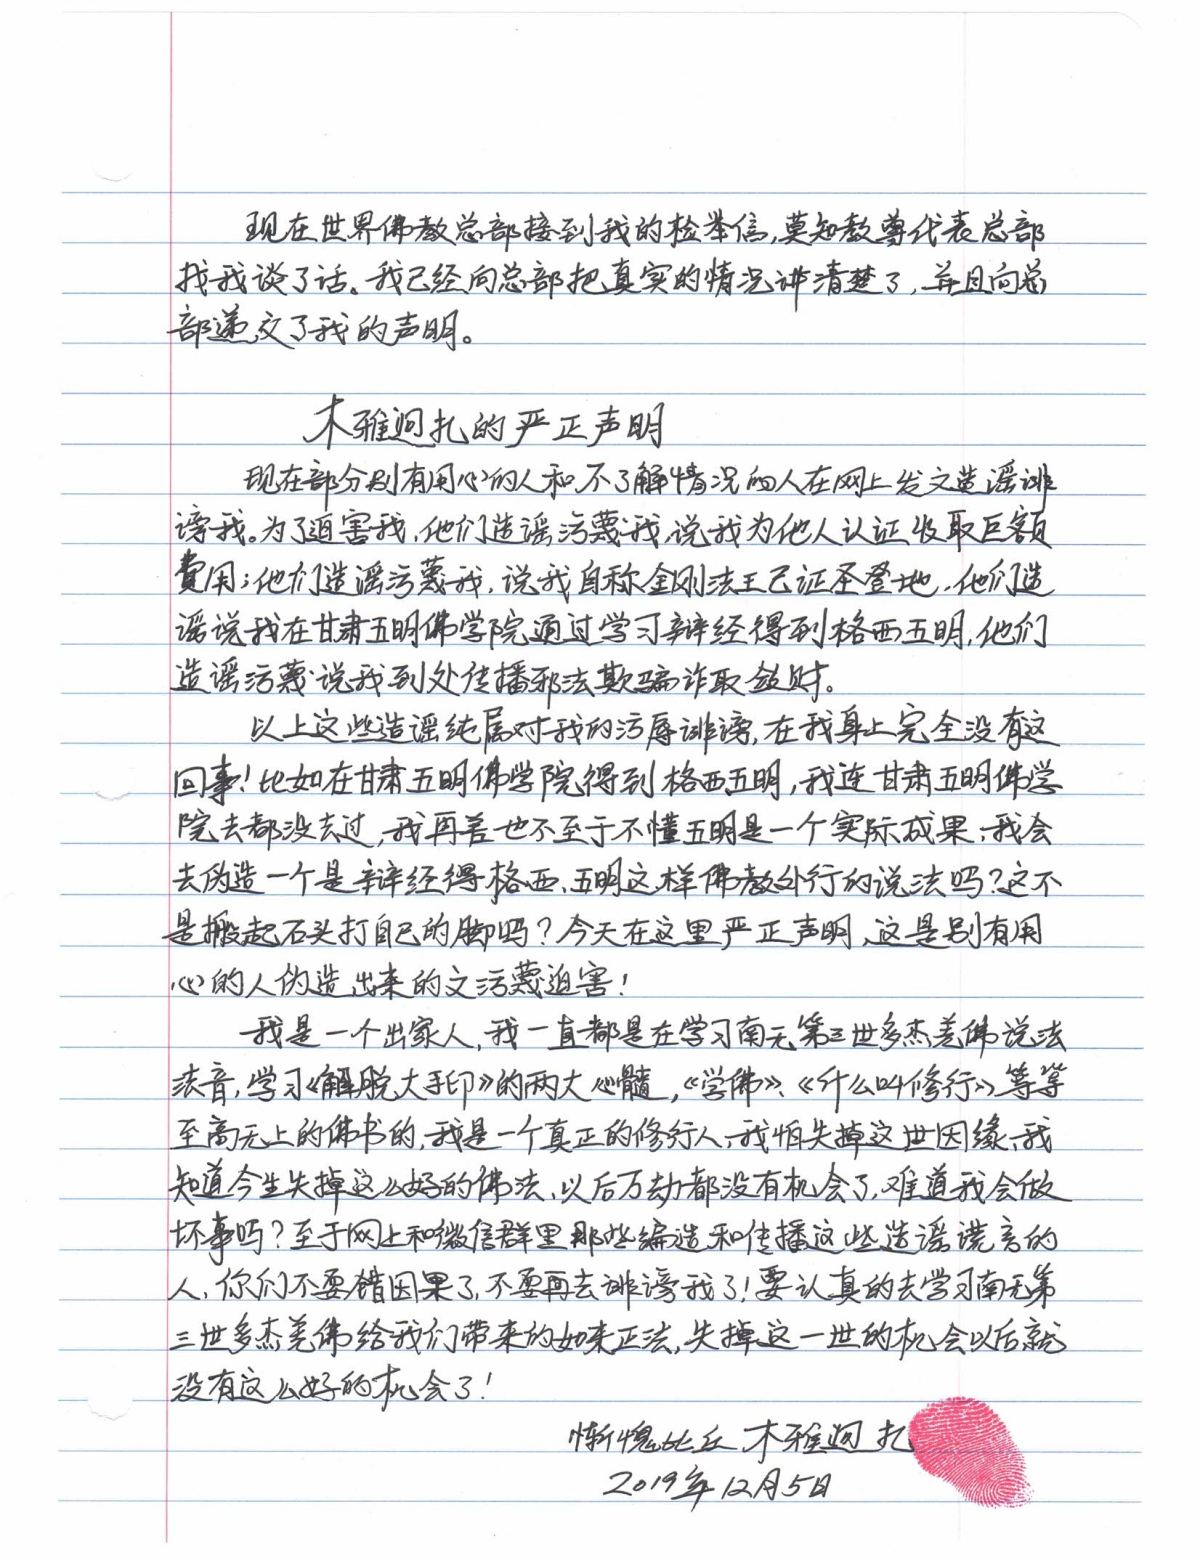 现在世界佛教总部接到我的检举信,莫知教尊代表总部
找我谈了话。我已经向总部把真实的情况讲清楚了,并且向总
部递交了我的声明。
木雅迥扎的严正声明
现在部分别有用心的人和不了解情况的人在网上发文造谣诽
谤我。为了迫害我,他们造谣污蔑我,说我为他人认证收取巨额
费用;他们造谣污蔑我,说我自称金刚法王已证圣登地,他们造
谣说我在甘肃五明佛学院通过学习辩经得到格西五明,他们
造谣污蔑说我到处传播邪法欺骗诈取敛财。
以上这些造谣纯属对我的污辱诽谤,在我身上完全没有这
回事!比如在甘肃五明佛学院得到格西五明,我连甘肃五明佛学
院去都没去过,我再差也不至于不懂五明是一个实际成果,我会
去伪造一个是辩经得格西、五明这样佛教外行的说法吗?这不
是搬起石头打自己的脚吗?今天在这里严正声明,这是别有用
心的人伪造出来的文污蔑迫害!
我是一个出家人,我一直都是在学习南无第三世多杰羌佛说法
法音,学习《解脱大手印》的两大心髓,《学佛》、《什么叫修行》等等
至高无上的佛书的,我是一个真正的修行人,我怕失掉这世因缘,我
知道今生失掉这么好的佛法,以后万劫都没有机会了,难道我会做
坏事吗?至于网上和微信群里那些编造和传播这些造谣谎言的
人,你们不要错因果了,不要再去诽谤我了!要认真的去学习南无第
三世多杰羌佛给我们带来的如来正法,失掉这一世的机会以后就
没有这么好的机会了!
惭愧比丘 木雅迥扎
2019年12月5日